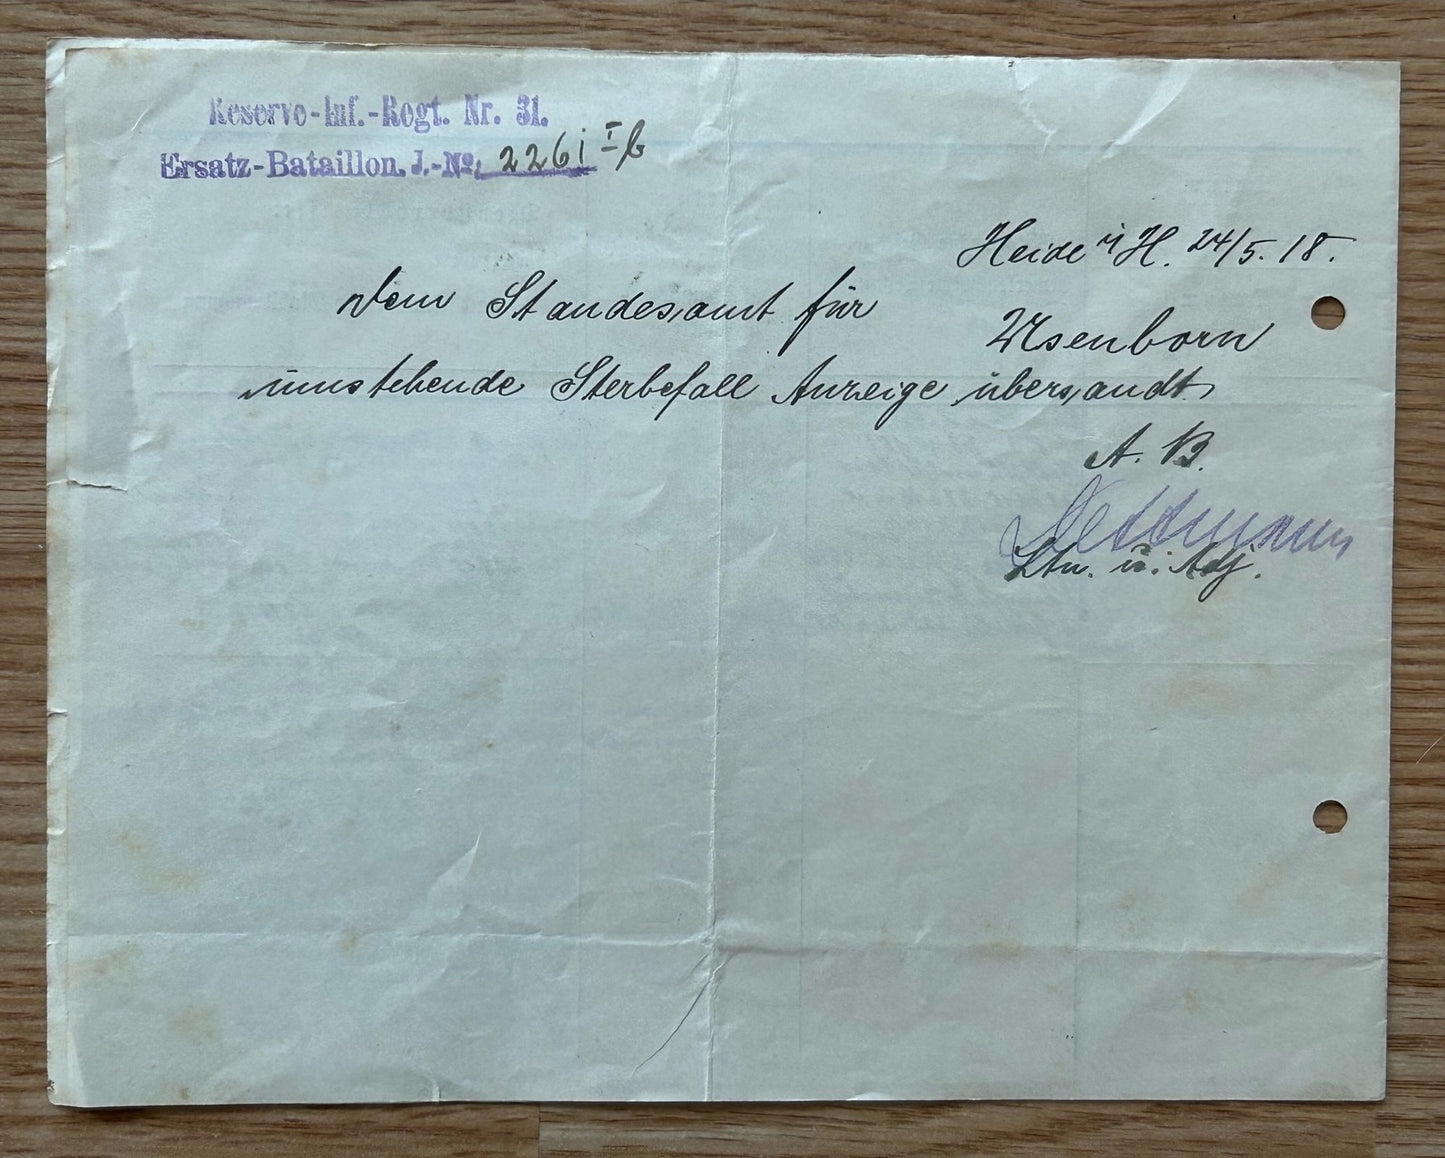 Reserve-Inf.-Regt. Nr. 31.
Ersatz-Bataillon. J.-No. 2261 I b
Heide i H. 24/5. 18.
Dem Standesamt für Usenborn
umstehende Sterbefall Anzeige übersandt.
A. B.
Dettmann
Ltn. u. Adj.